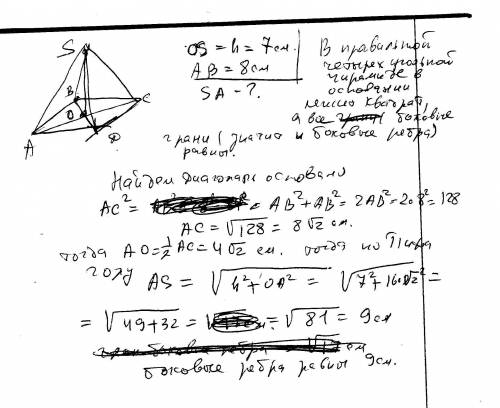 S
B
C
O
A
D
OS = h = 7 см.
AB = 8 см
SA - ?
В правильной
четырех угольной
пирамиде в
основании
лежит квадрат,
а все боковые
грани (значит и боковые ребра)
равны.
Найдем диагональ основани
AC² = AB² + AB² = 2AB² = 2·8² = 128
AC = √128 = 8√2 см.
тогда AO = ½ AC = 4√2 см. тогда по Пифа
гору AS = √h² + OA² = √7² + 16·√2² =
= √49 + 32 = = √81 = 9 см
боковые ребра равны 9 см.